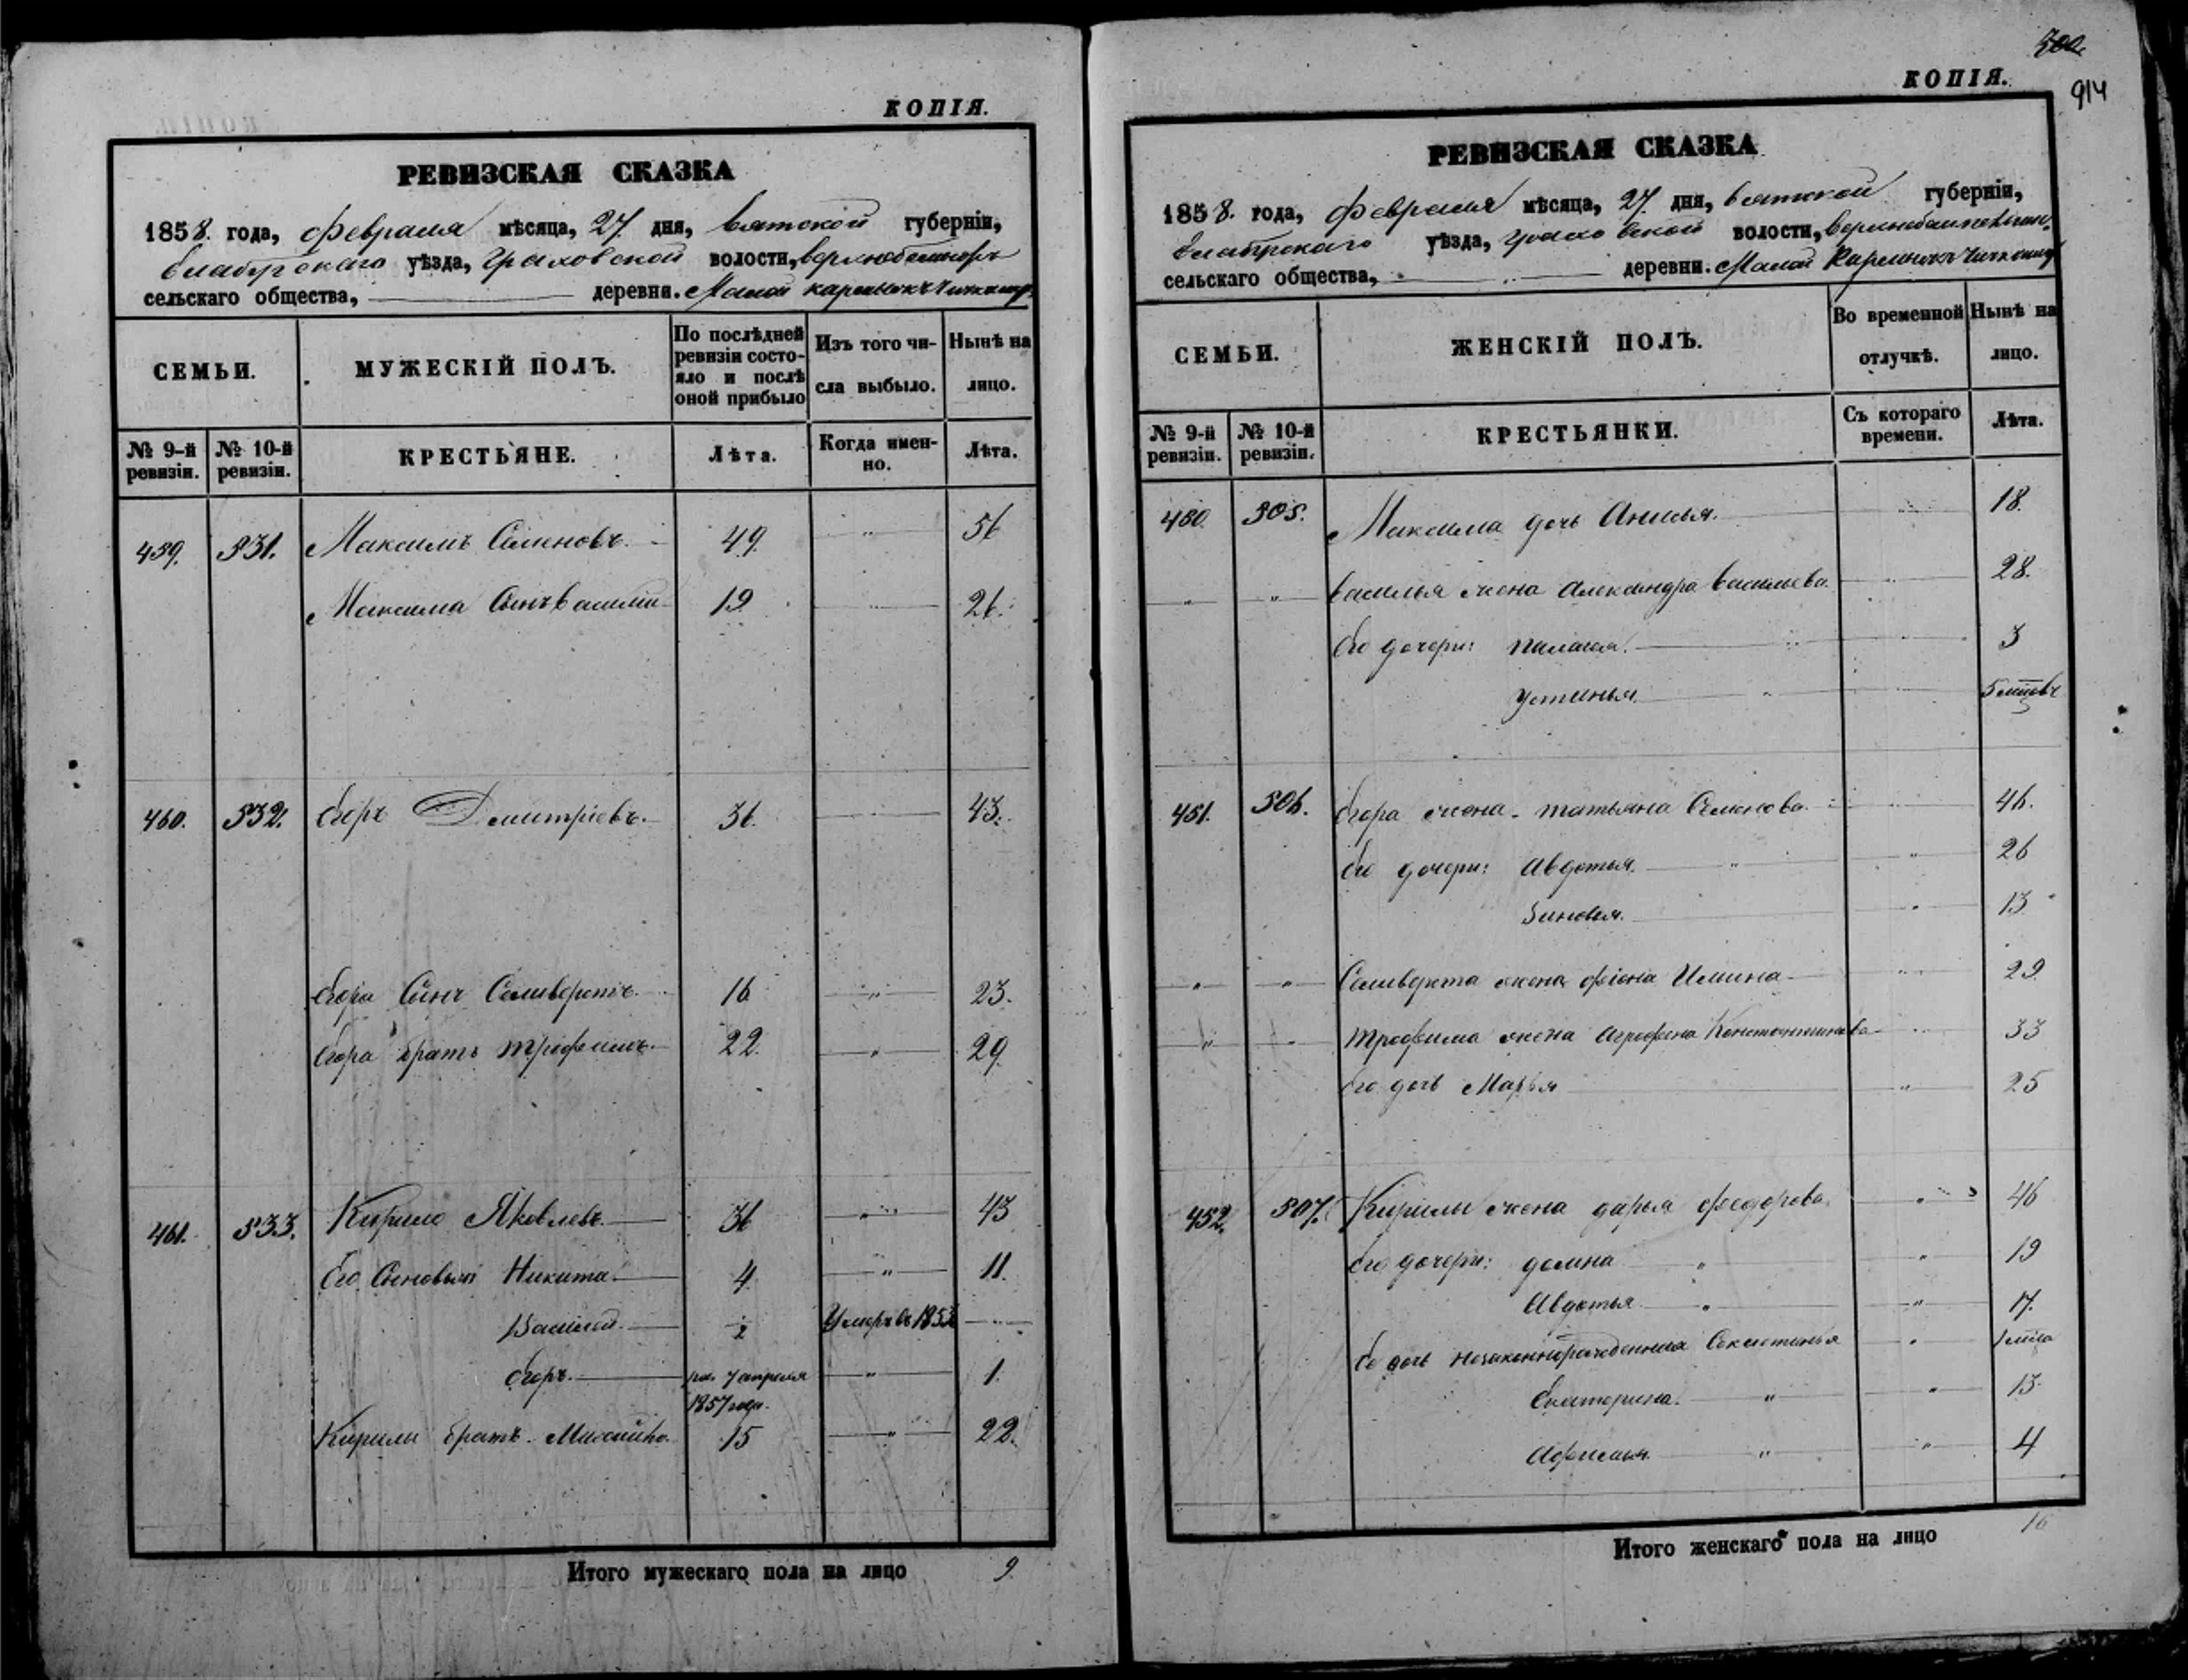 КОПІЯ.
РЕВИЗСКАЯ СКАЗКА
1858. года, февраля мѣсяца, 27. дня, вятской губерніи,
Елабугскаго уѣзда, Граховской волости,
сельскаго общества, деревни. Малой
СЕМЬИ. МУЖЕСКІЙ ПОЛЪ. По послѣдней ревизіи состояло и послѣ оной прибыло Изъ того числа выбыло. Нынѣ на лицо.
№ 9-й ревизіи. № 10-й ревизіи. КРЕСТЬЯНЕ. Лѣта. Когда именно. Лѣта.
459. 531. Максимъ Семеновъ. 49. " 56
Максима Сынъ Василій 19 " 26.
460. 532. Егоръ Дмитріевъ. 36. 43.
Егора Сынъ Селиверстъ. 16 " 23.
Егора братъ Трофимъ. 22. " 29.
461. 533. Кирило Яковлевъ. 36 " 43
Его Сыновья Никита. 4. " 11.
Василей. ½ Умеръ въ 1853
Егоръ. ро. 7 апреля " 1.
1857 года.
Кирили братъ. Михайло. 15 " 22.
Итого мужескаго пола на лицо 9.
914
КОПІЯ.
РЕВИЗСКАЯ СКАЗКА
1858. года, февраля мѣсяца, 27. дня, вятской губерніи,
Елабугскаго уѣзда, Граховской волости,
сельскаго общества, деревни. Малой
СЕМЬИ. ЖЕНСКІЙ ПОЛЪ. Во временной отлучкѣ. Нынѣ на лицо.
№ 9-й ревизіи. № 10-й ревизіи. КРЕСТЬЯНКИ. Съ котораго времени. Лѣта.
450. 505. Максима дочь Анисья. 18.
" " Василья жена Александра Васильева. 28.
Его дочери: Палагея. 3
Устинья. 5
451. 506. Егора жена. Татьяна Семенова. 46.
Его дочери: Авдотья. " 26
Зиновья. " 13
" " Селиверста жена Фіона Ильина 29
" " Трофима жена Агрофена Константинова 33
Его дочь Марья " 25
452. 507. Кирилы жена Дарья Федорова. " 46
Его дочери: Домна " 19
Авдотья " 17.
Ее дочь Незаконнорожденная " 1
Екатерина. " 13.
Афимья. " 4
Итого женскаго пола на лицо 16